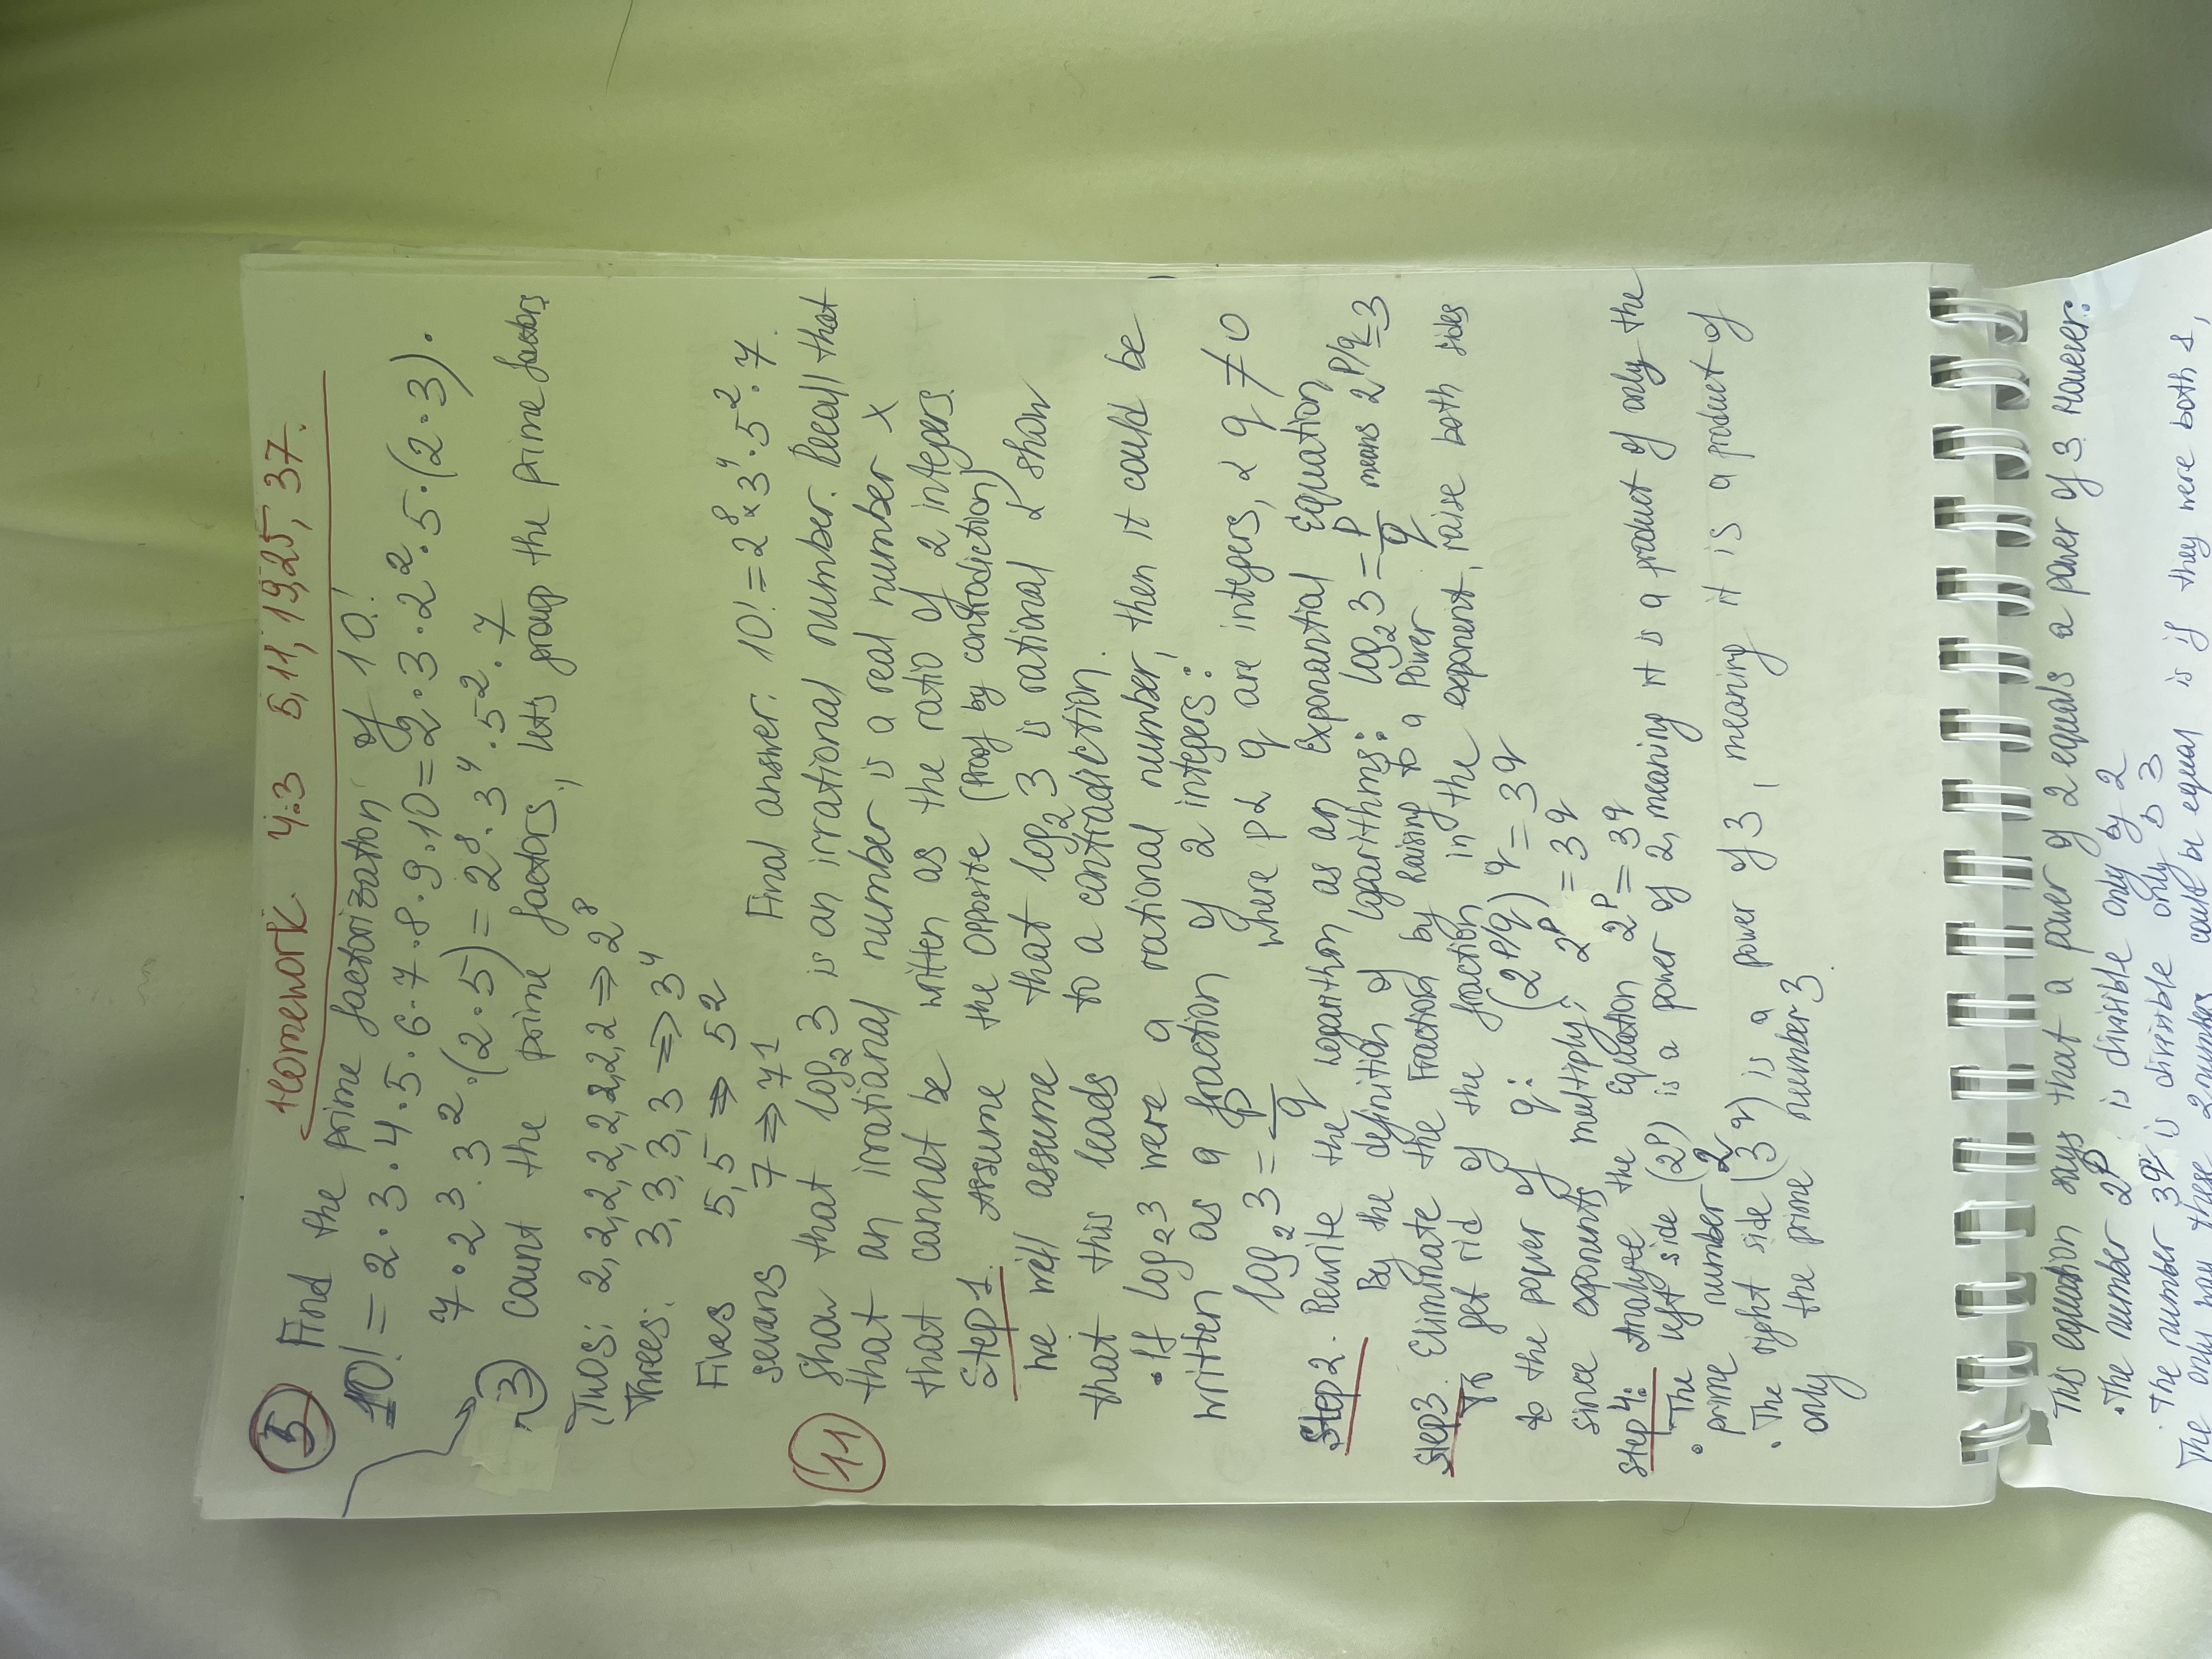 Homework. 4:3 5, 11, 19, 25, 37.
5 Find the prime factorization of 10!
10! = 2·3·4·5·6·7·8·9·10 = 2·3·2²·5·(2·3)·
7·2³·3²·(2·5) = 2⁸·3⁴·5²·7
3) Count the prime factors, let's group the prime factors
Twos: 2,2,2,2,2,2,2,2 ⇒ 2⁸
Threes: 3,3,3,3 ⇒ 3⁴
Fives 5,5 ⇒ 5²
sevens 7 ⇒ 7¹ Final answer. 10! = 2⁸×3⁴·5²·7.
11 Show that log₂3 is an irrational number. Recall that
that an irratianal number is a real number x
that cannot be written as the ratio of 2 integers.
Step 1. Assume the Opposite (Proof by contradiction)
We will assume that log₂3 is rational & show
that this leads to a contradiction.
• If log₂3 were a rational number, then it could be
written as a fraction of 2 integers:
log₂3 = p/q where p & q are integers, & q ≠ 0
Step 2. Rewrite the Logarithm as an Exponantial Equation
By the definition of logarithms: log₂3 = p/q means 2^p/q = 3
Step 3. Eliminate the Fraction by Raising to a Power
To get rid of the fraction in the exponent, raise both sides
to the power of q: (2^p/q)^q = 3^q
since exponents multiply: 2^p = 3^q
Step 4: Analyze the Equation 2^p = 3^q
• The left side (2^p) is a power of 2, meaning it is a product of only the
prime number 2
• The right side (3^q) is a power of 3, meaning it is a product of
only the prime number 3.
This equation says that a power of 2 equals a power of 3. However:
• The number 2^p is divisible only by 2
• The number 3^q is divisible only 3
The only way these 2 numbers could be equal is if they were both 1,